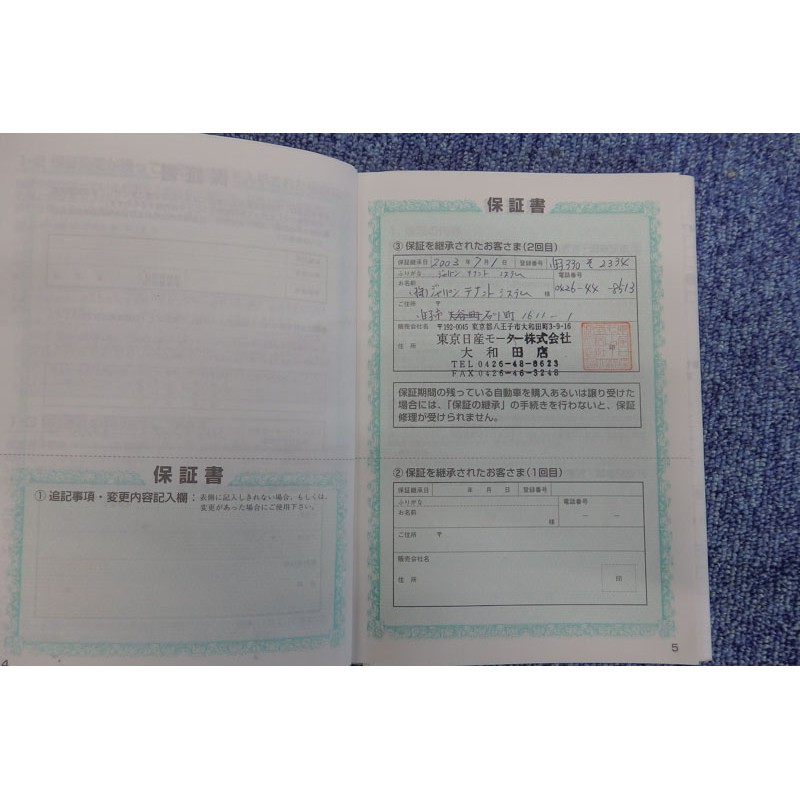 保証書
① 追記事項・変更内容記入欄：表側に記入しきれない場合、もしくは、
変更があった場合にご使用下さい。
4
保証書
③ 保証を継承されたお客さま(2回目)
保証継承日 2003 年 7 月 1 日 登録番号 330 2334
ふりがな ジャパン テナント システム 電話番号
お名前 (株)ジャパン テナント システム 様 0426-44-8513
ご住所 〒
石川町 1611-1
販売会社名 〒192-0045 東京都八王子市大和田町3-9-16
東京日産モーター株式会社
住所 大和田店 印
TEL 0426-48-8623
FAX 0426-46-3248
保証期間の残っている自動車を購入あるいは譲り受けた
場合には、「保証の継承」の手続きを行わないと、保証
修理が受けられません。
② 保証を継承されたお客さま(1回目)
保証継承日 年 月 日 登録番号
ふりがな 電話番号
お名前 様 － －
ご住所 〒
販売会社名
住所 印
5